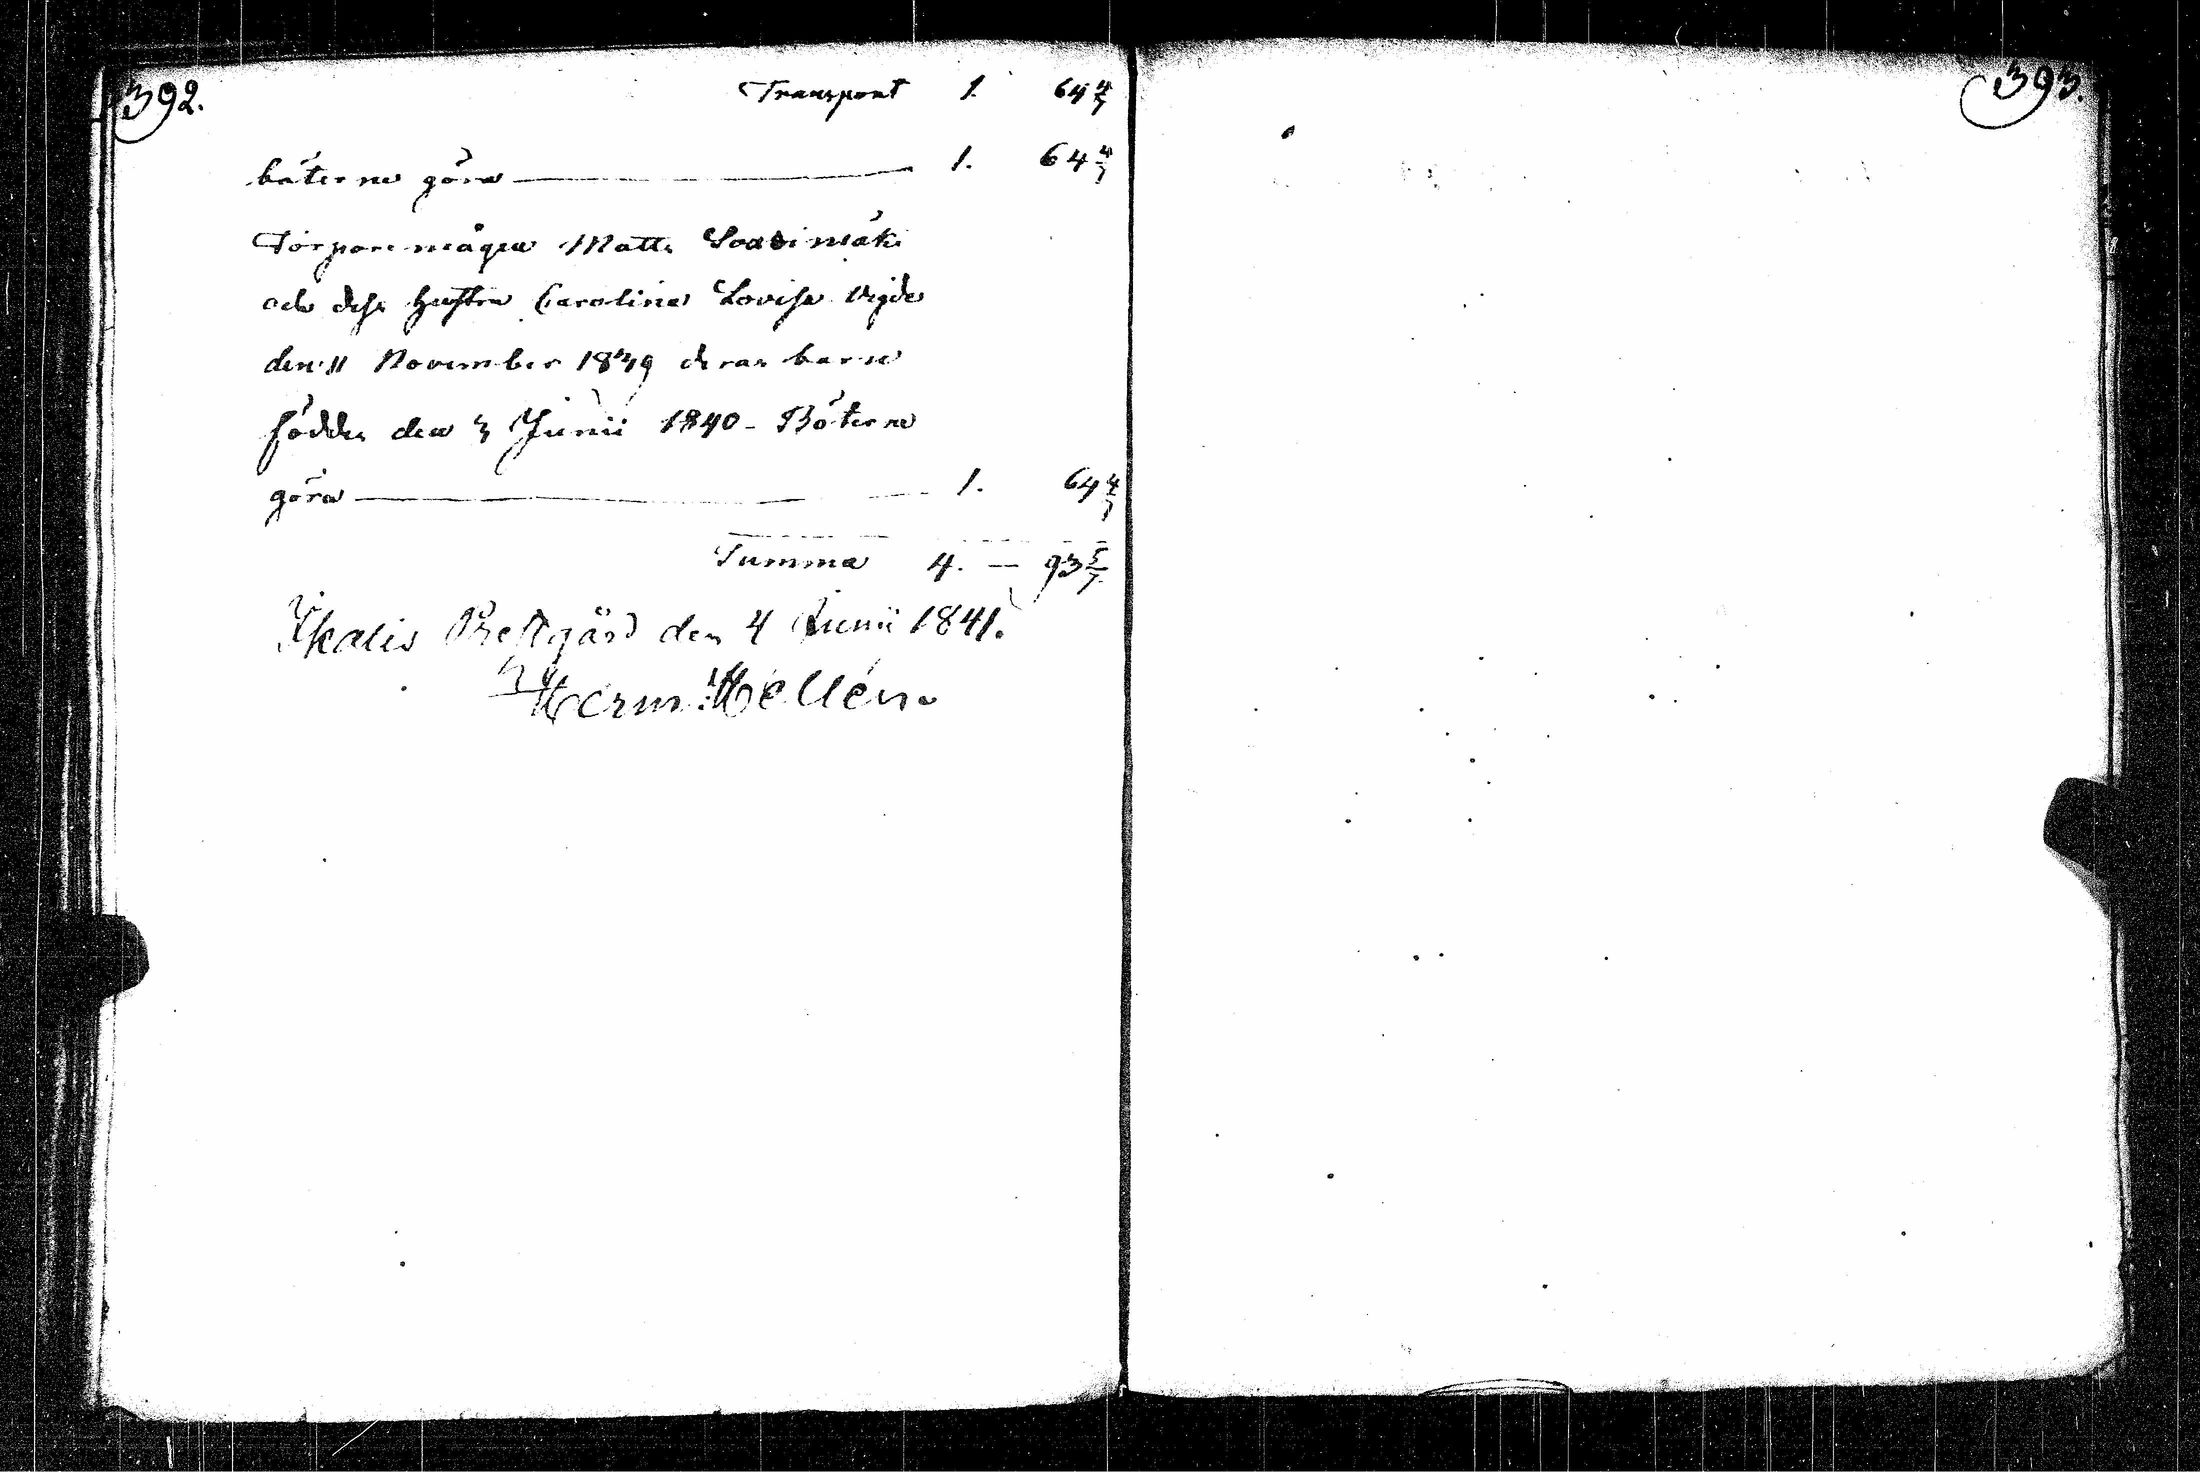 392.
Transport 1. 64 4/7
böterne göra — 1. 64 4/7
Torparemågen Matts Soasimäki
och dess hustru Carolina Lovisa vigde
den 11 November 1839 deras barn
föddes den 3 Junii 1840 - Böterne
göra — 1. 64 4/7
Summa 4. — 93 5/7
Ikalis Prestgård den 4 Junii 1841.
Herm: Hellén.
393.